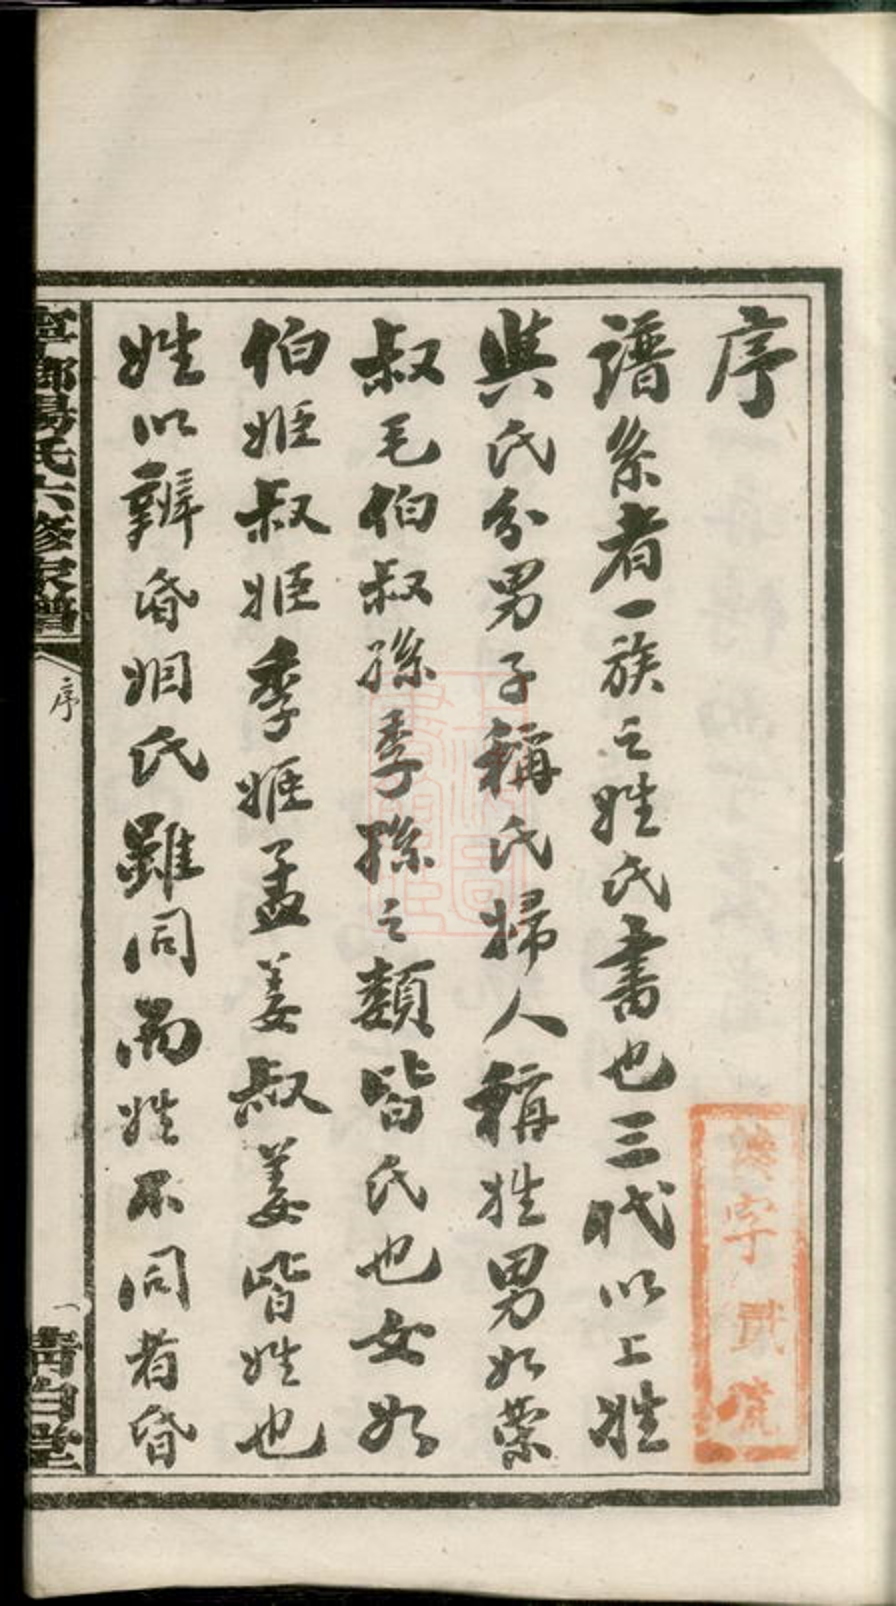 序
譜系者一族之姓氏書也三代以上姓
與氏分男子稱氏婦人稱姓男如榮
叔毛伯叔孫季孫之類皆氏也女如
伯姬叔姬季姬孟姜叔姜皆姓也
姓以辨昏姻氏雖同而姓不同者昏
字貳號
氏六修家譜
序
一
堂